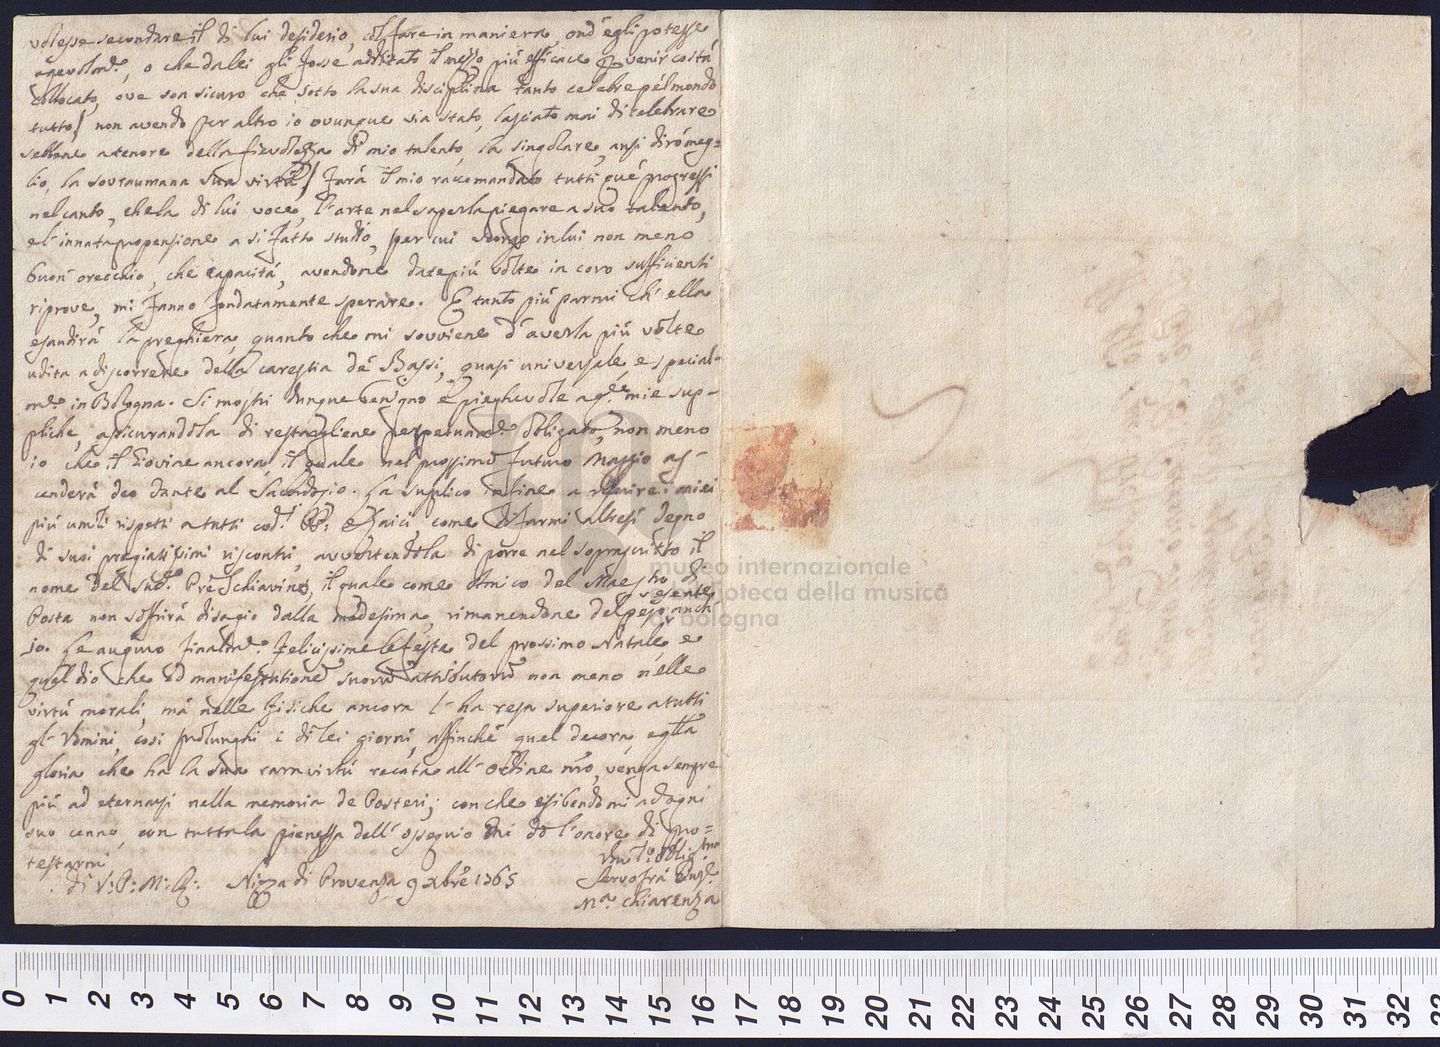 volesse secundare il di lui desiderio, col fare in maniera ond'egli potesse
agevolmte, o che da lei gli fosse additato il mezzo più efficace per venir costà
collocato, ove son sicuro che sotto la sua disciplina tanto celebre pel mondo
tutto/ non avendo per altro io ovunque sia stato, lasciato mai di celebrare
sebbene a tenore della fievolezza di mio talento, la singolare, anzi dirò meg=
lio, la sovraumana sua virtù/ farà il mio raccomandato tutti què progressi
nel canto, che la di lui voce, l'arte nel saperla piegare a suo talento,
e l'innata propensione a sì fatto studio, per cui scorgo in lui non meno
buon orecchio, che capacità, avendone date più volte in coro sufficienti
riprove, mi fanno fondatamente sperare. E tanto più parmi ch'ella
esaudirà la preghiera, quanto che mi sovviene d'averla più volte
udita a discorrere della carestia dè Bassi, quasi universale, e special-
mte in Bologna. Si mostri dunque benigno e pieghevole a qte mie sup-
pliche, assicurandola di restargliene perpetuamte obligato, non meno
io che il Giovine ancora, il quale nel prossimo futuro Maggio as-
cenderà deo dante al Sacerdozio. La suplico infine a riverire i miei
più umili rispetti a tutti cod.i PP: e Laici come di farmi altresì degno
di suoi pregiatissimi riscontri, avvertendola di porre nel soprascritto il
nome del Sud.o Prè Schiavino, il quale come Amico del Maestro di
Posta non soffrirà disagio dalla medesima, rimanendone del peso esente anch'
io. Le auguro finalmte felicissime le feste del prossimo Natale e
quel dio che ad manifestatione suorum attributorum non meno nelle
virtù morali, mà nelle fisiche ancora l'ha resa superiore a tutti
gl'Uomini, così prolunghi i di lei giorni, affinchè quel decoro, e qlla
gloria che ha la sua rara virtù recata all'Ordine nro, venga sempre
più ad eternarsi nella memoria de Posteri; con che esibendomi ad ogni
suo cenno, con tutta la pienezza dell'ossequio mi dò l'onore di pro=
testarmi
di V: P: M: R: Nizza di Provenza 9 Xbre 1765
Um.o Oblig.mo
Servo Frà
M.a Chiarenza
museo internazionale
e biblioteca della musica
di bologna
0 1 2 3 4 5 6 7 8 9 10 11 12 13 14 15 16 17 18 19 20 21 22 23 24 25 26 27 28 29 30 31 32